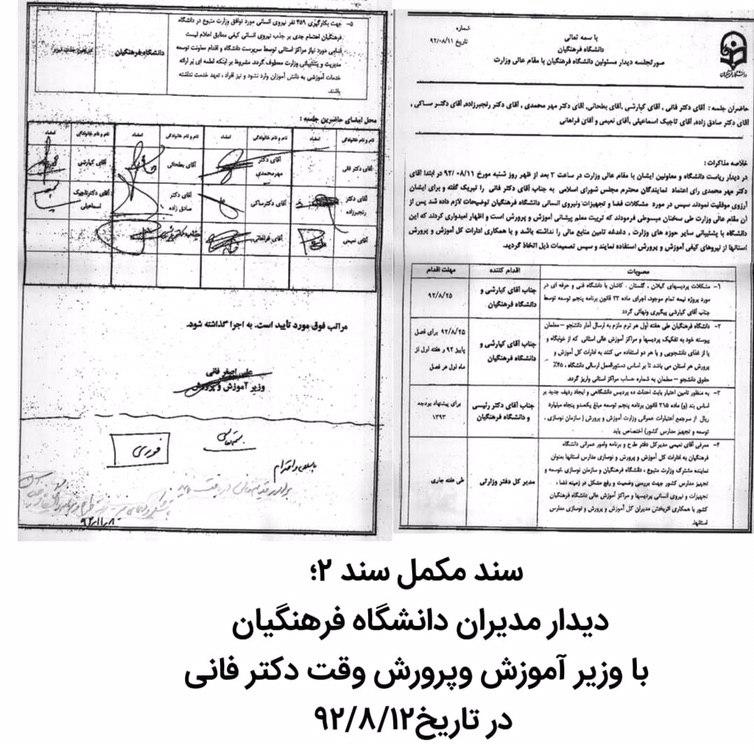 با سمه تعالی
دانشگاه فرهنگیان
صورتجلسه دیدار مسئولین دانشگاه فرهنگیان با مقام عالی وزارت
شماره
تاریخ ۹۲/۰۸/۱۱
حاضران جلسه : آقای دکتر فانی ، آقای کیارشی ، آقای بطحانی، آقای دکتر مهر محمدی ، آقای دکتر رنجبرزاده، آقای دکتر ساکی،
آقای دکتر صادق زاده، آقای تاجیک اسماعیلی، آقای نعیمی و آقای فراهانی
خلاصه مذاکرات :
در دیدار ریاست دانشگاه و معاونین ایشان با مقام عالی وزارت در ساعت ۲ بعد از ظهر روز شنبه مورخ ۹۲/۰۸/۱۱ در ابتدا آقای
دکتر مهر محمدی رای اعتماد نمایندگان محترم مجلس شورای اسلامی به جناب آقای دکتر فانی را تبریک گفته و برای ایشان
آرزوی موفقیت نمودند سپس در مورد مشکلات فضا و تجهیزات ونیروی انسانی دانشگاه فرهنگیان توضیحات لازم داده شد پس از
آن مقام عالی وزارت طی سخنان مبسوطی فرمودند که تربیت معلم پیشانی آموزش و پرورش است و اظهار امیدواری کردند که این
دانشگاه با پشتیبانی سایر حوزه های وزارت ، دغدغه تامین منابع مالی را نداشته باشد و با همکاری ادارات کل آموزش و پرورش
استانها از نیروهای کیفی آموزش و پرورش استفاده نمایند و سپس تصمیمات ذیل اتخاذ گردید.
مصوبات
اقدام کننده
مهلت اقدام
۱- مشکلات پردیسهای گیلان ، گلستان ، کاشان با دانشگاه فنی و حرفه ای در
مورد پروژه نیمه تمام موجود، اجرای ماده ۲۲ قانون برنامه پنجم توسعه توسط
جناب آقای کیارشی پیگیری ونهائی گردد
جناب آقای کیارشی و
دانشگاه فرهنگیان
۹۲/۸/۲۵
۲- دانشگاه فرهنگیان طی هفته اول هر ترم ملزم به ارسال آمار دانشجو - معلمان
پیوسته خود به تفکیک پردیسها و مراکز آموزش عالی استانی که از خوابگاه و
یا از غذای دانشجویی و یا هر دو استفاده می کنند به ادارات کل آموزش و
پرورش هر استان می باشد تا بر اساس دستورالعمل ارسالی دانشگاه ، ۴۵٪
حقوق دانشجو - معلمان به شماره حساب مراکز استانی واریز گردد.
جناب آقای کیارشی و
دانشگاه فرهنگیان
۹۲/۸/۲۵ برای فصل
پاییز ۹۲ و هفته اول از
ماه اول هر فصل
۳- به منظور تامین اعتبار بابت احداث ده پردیس دانشگاهی و ایجاد ردیف جدید بر
اساس بند (و) ماده ۲۱۵ قانون برنامه پنجم توسعه مبلغ یکصدو پنجاه میلیارد
ریال از سرجمع اعتبارات عمرانی وزارت آموزش و پرورش ( سازمان نوسازی ،
توسعه و تجهیز مدارس کشور) اختصاص یابد
جناب آقای دکتر رئیسی
و دانشگاه فرهنگیان
برای پیشنهاد بودجه
۱۳۹۳
۴- معرفی آقای نعیمی مدیرکل دفتر طرح و برنامه وامور عمرانی دانشگاه
فرهنگیان به ادارات کل آموزش و پرورش و نوسازی مدارس استانها بعنوان
نماینده مشترک وزارت متبوع ، دانشگاه فرهنگیان و سازمان نوسازی ،توسعه و
تجهیز مدارس کشور جهت بررسی وضعیت و رفع مشکل در زمینه فضا ،
تجهیزات و نیروی انسانی پردیسها و مراکز آموزش عالی دانشگاه فرهنگیان
کشور با همکاری اثربخش مدیران کل آموزش و پرورش و نوسازی مدارس
استانها.
مدیر کل دفتر وزارتی
طی هفته جاری
۵- جهت بکارگیری ۴۵۹ نفر نیروی انسانی مورد توافق وزارت متبوع در دانشگاه
فرهنگیان اهتمام جدی بر جذب نیروی انسانی کیفی مطابق اعلام لیست
اسامی مورد نیاز مراکز استانی توسط سرپرست دانشگاه و اقدام معاونت توسعه
مدیریت و پشتیبانی وزارت معطوف گردد. مشروط بر اینکه لطمه ای بر ارائه
خدمات آموزشی به دانش آموزان وارد نشود و نیز افراد ، تعهد خدمت نداشته
باشند.
دانشگاه فرهنگیان
محل امضای حاضرین جلسه :
نام و نام خانوادگی
امضاء
نام و نام خانوادگی
امضاء
نام و نام خانوادگی
امضاء
نام و نام خانوادگی
امضاء
آقای دکتر فانی
آقای دکتر
مهرمحمدی
آقای بطحانی
آقای کیارشی
آقای دکتر
رنجبرزاده
آقای دکترساکی
آقای دکتر
صادق زاده
آقای دکترتاجیک
اسماعیلی
آقای نعیمی
آقای فراهانی
مراتب فوق مورد تایید است. به اجرا گذاشته شود.
علی اصغر فانی
وزیر آموزش و پرورش
فوری
سند مکمل سند ۲؛
دیدار مدیران دانشگاه فرهنگیان
با وزیر آموزش وپرورش وقت دکتر فانی
در تاریخ۹۲/۸/۱۲